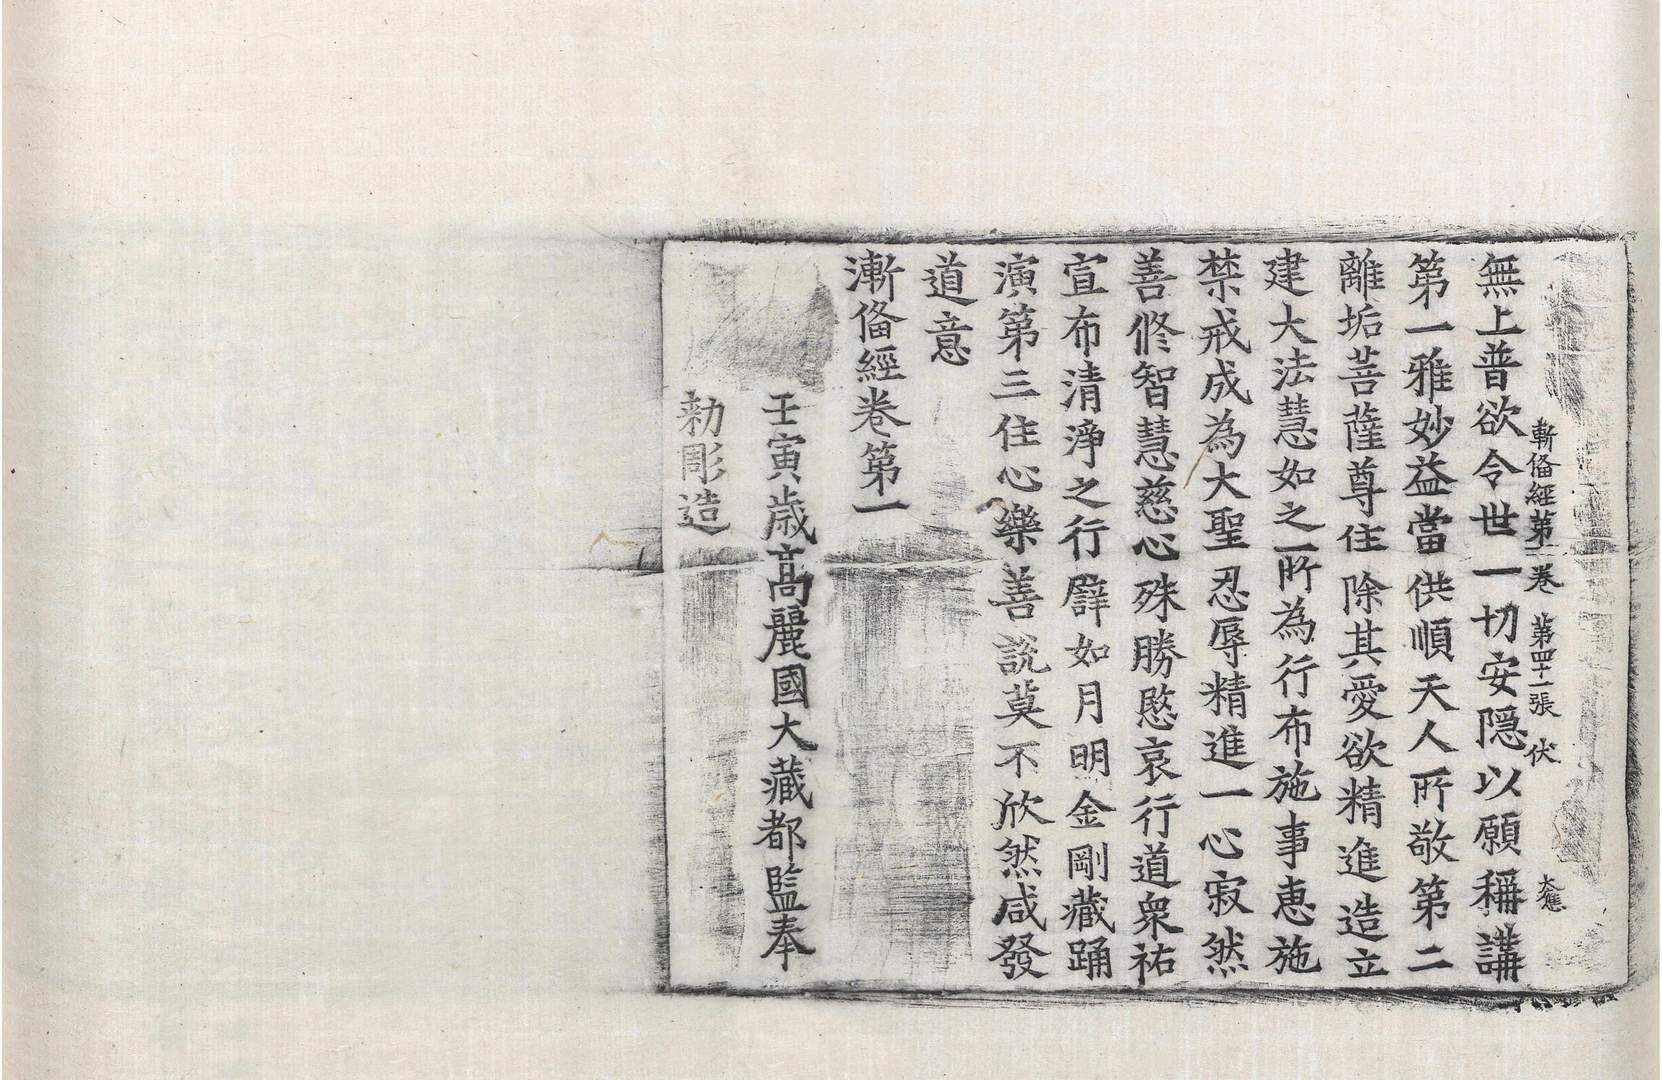 漸俻經第一卷 第四十一張 伏
無上普欲令世一切安隱以願稱講
第一雅妙益當供順天人所敬第二
離垢菩薩尊住除其愛欲精進造立
建大法慧如之所為行布施事恵施
禁戒成為大聖忍辱精進一心寂然
善修智慧慈心殊勝愍哀行道衆祐
宣布清淨之行譬如月明金剛藏踊
演第三住心樂善說莫不欣然咸發
道意
漸俻經卷第一
壬寅歳高麗國大藏都監奉
勑彫造